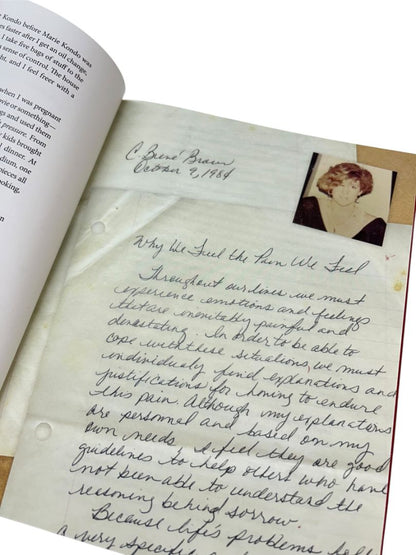 Kondo before Marie Kondo was
faster after I get an oil change,
I take five bags of stuff to the
sense of control. The house
ght, and I feel freer with a
when I was pregnant
wie or something—
ngs and used them
pressure. From
kids brought
dinner. At
dium, one
pieces all
ooking,
C Brené Brown
October 9, 1984
Why We Feel the Pain We Feel
Throughout our lives we must
experience emotions and feelings
that are inevitably painful and
devastating. In order to be able to
cope with these situations, we must
individually find explanations and
justifications for having to endure
this pain. Although my explanations
are personnal and based on my
own needs. I feel they are good
guidelines to help others who have
not been able to understand the
reasoning behind sorrow.
Because life's problems
a very specific and